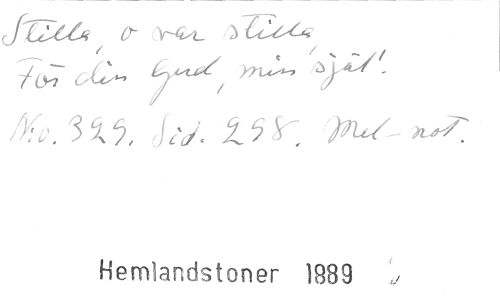 Stilla, o var stilla
För din Gud, min själ!
No. 329. Sid. 298. Mel-not.
Hemlandstoner 1889